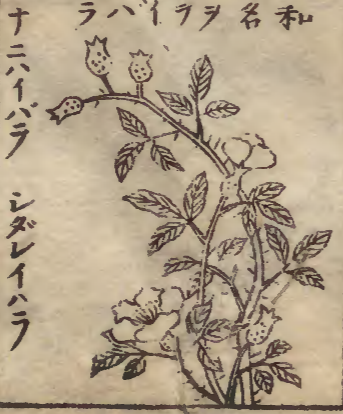 和名ヲライバラ
ナニハイバラ　シダレイハラ